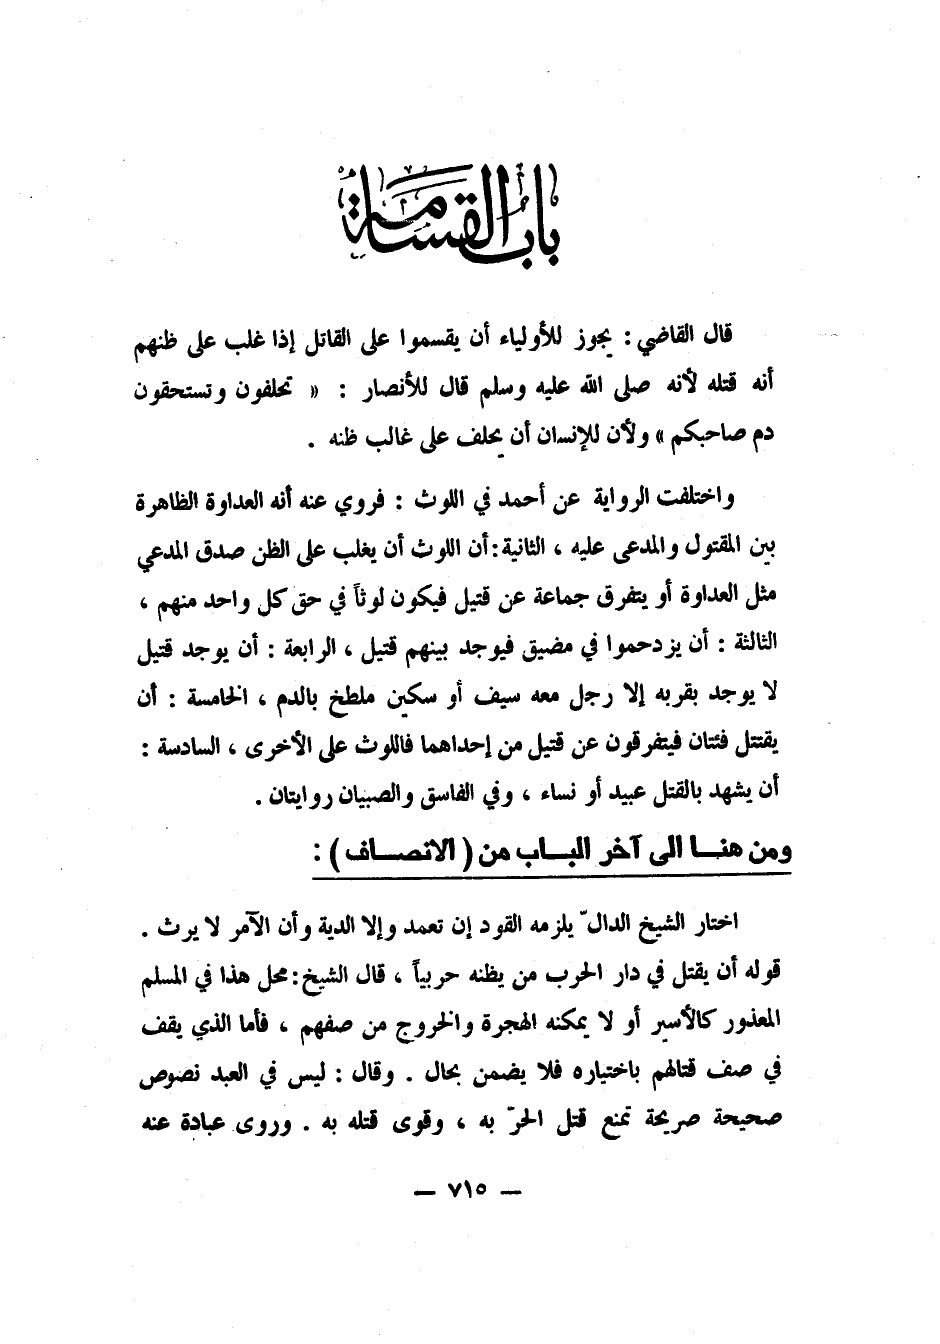 باب القسامة
قال القاضي : يجوز للأولياء أن يقسموا على القاتل إذا غلب على ظنهم
أنه قتله لأنه صلى الله عليه وسلم قال للأنصار : « تحلفون وتستحقون
دم صاحبكم » ولأن للإنسان أن يحلف على غالب ظنه .
واختلفت الرواية عن أحمد في اللوث : فروي عنه أنه العداوة الظاهرة
بين المقتول والمدعى عليه ، الثانية : أن اللوث أن يغلب على الظن صدق المدعي
مثل العداوة أو يتفرق جماعة عن قتيل فيكون لوثاً في حق كل واحد منهم ،
الثالثة : أن يزدحموا في مضيق فيوجد بينهم قتيل ، الرابعة : أن يوجد قتيل
لا يوجد بقربه إلا رجل معه سيف أو سكين ملطخ بالدم ، الخامسة : أن
يقتتل فئتان فيتفرقون عن قتيل من إحداهما فاللوث على الأخرى ، السادسة :
أن يشهد بالقتل عبيد أو نساء ، وفي الفاسق والصبيان روايتان .
ومن هنـا الى آخر البـاب من ( الانصـاف ) :
اختار الشيخ الدالّ يلزمه القود إن تعمد وإلا الدية وأن الآمر لا يرث .
قوله أن يقتل في دار الحرب من يظنه حربياً ، قال الشيخ : محل هذا في المسلم
المعذور كالأسير أو لا يمكنه الهجرة والخروج من صفهم ، فأما الذي يقف
في صف قتالهم باختياره فلا يضمن بحال . وقال : ليس في العبد نصوص
صحيحة صريحة تمنع قتل الحرّ به ، وقوى قتله به . وروى عبادة عنه
— ٧١٥ —